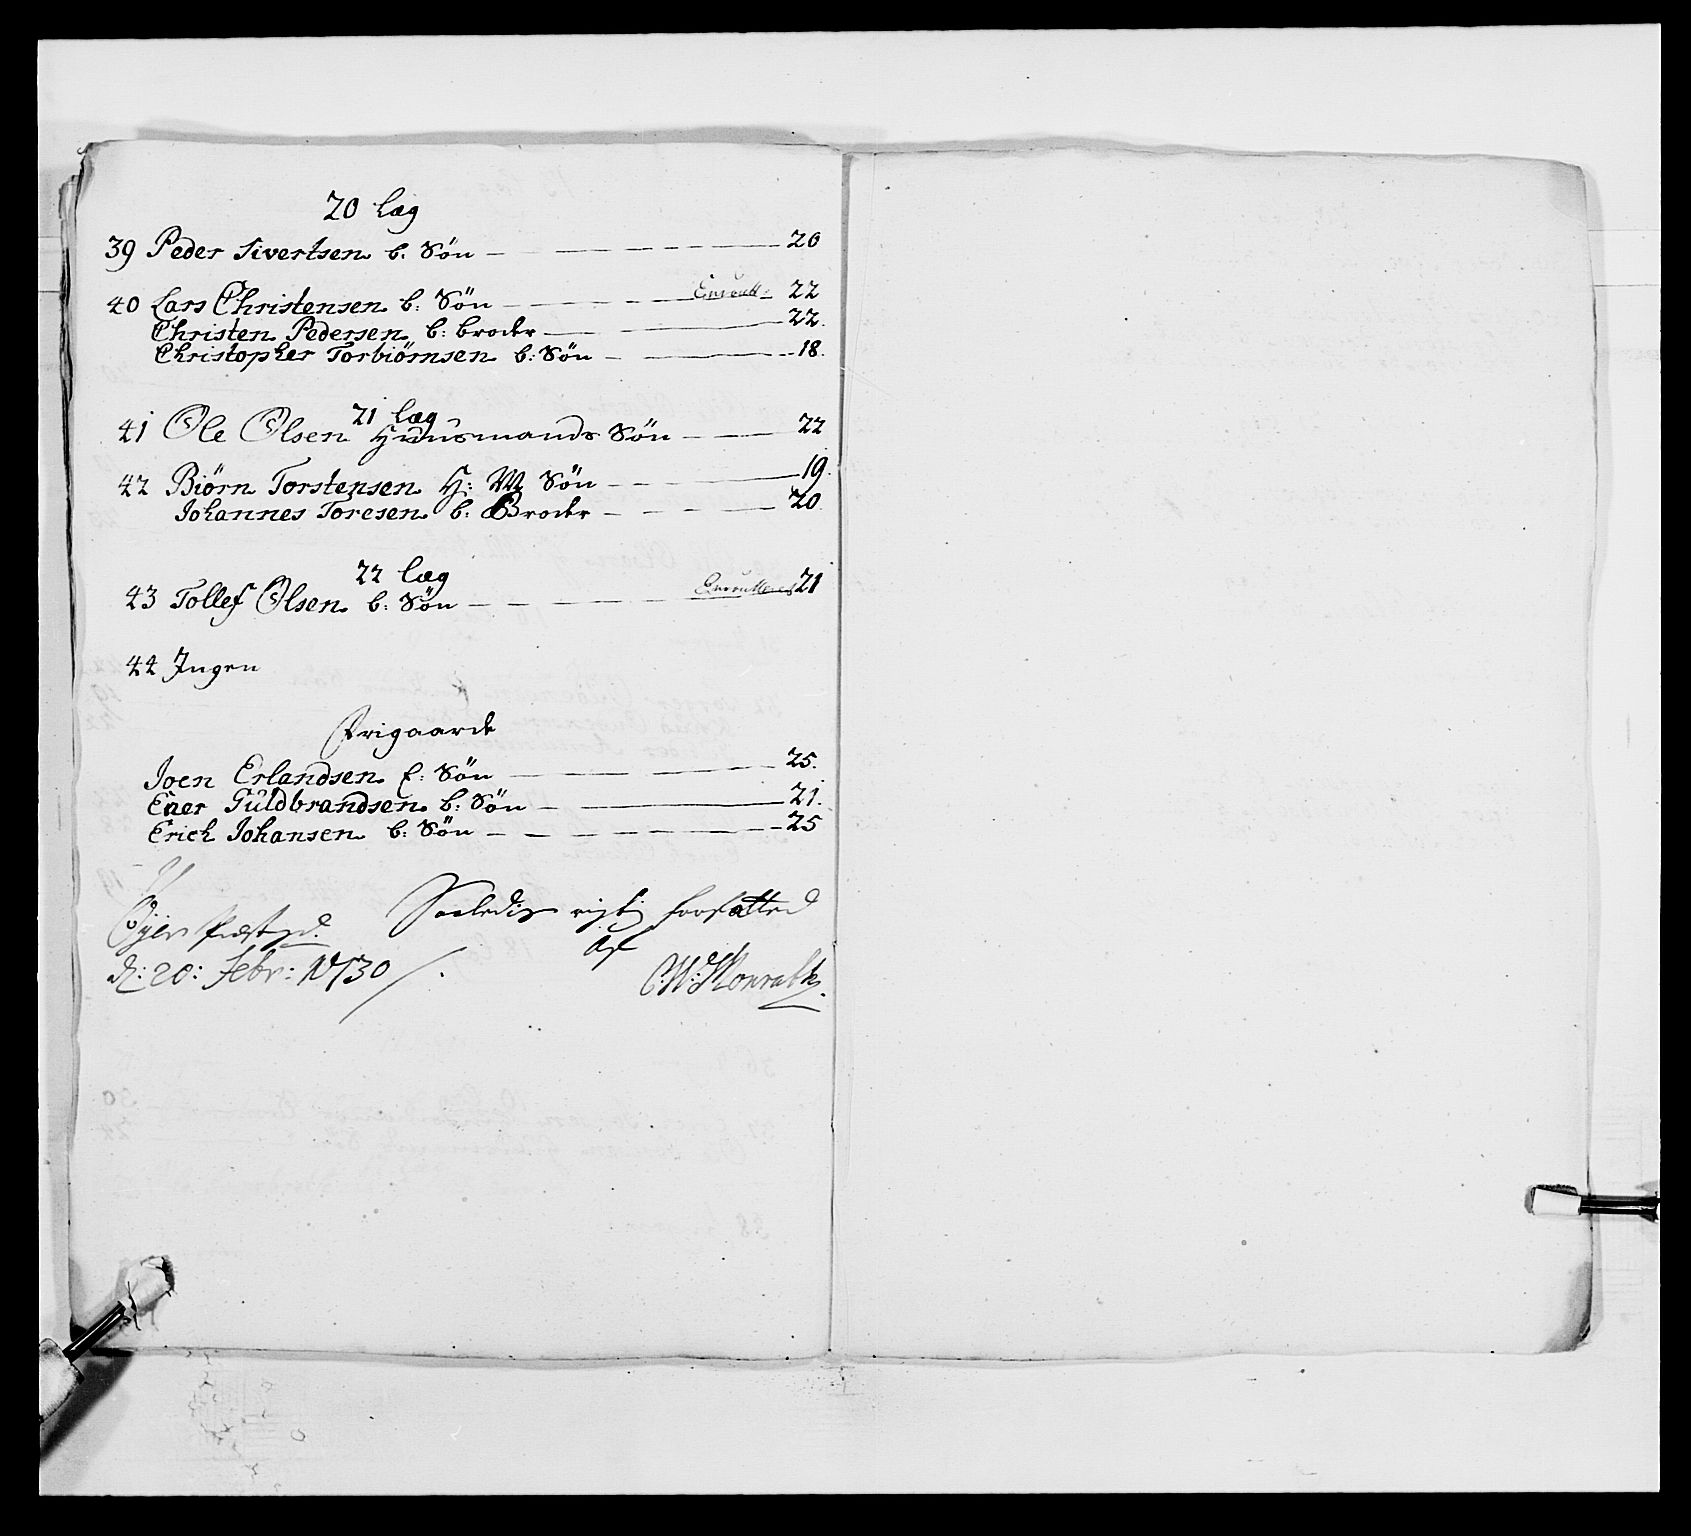 20 Læg
39 Peder Sivertsen b: Søn 20
40 Lars Christensen b: Søn Enroull: 22
Christen Pedersen b: broder 22.
Christopher Torbiørnsen b: Søn 18.
21 Læg
41 Ole Olsen Huusmands Søn 22
42 Biørn Torstensen H: M Søn 19.
Johannes Toresen b: Broder 20
22 Læg
43 Tollef Olsen b: Søn Enroulleret 21
44 Ingen
Frigaarde
Joen Erlandsen b: Søn 25.
Ener Guldbrandsen b: Søn 21.
Erich Johansen b: Søn 25
Øyer Præstegd. Saaledis rigtig forfatted
d: 20: Febr: 1730 af